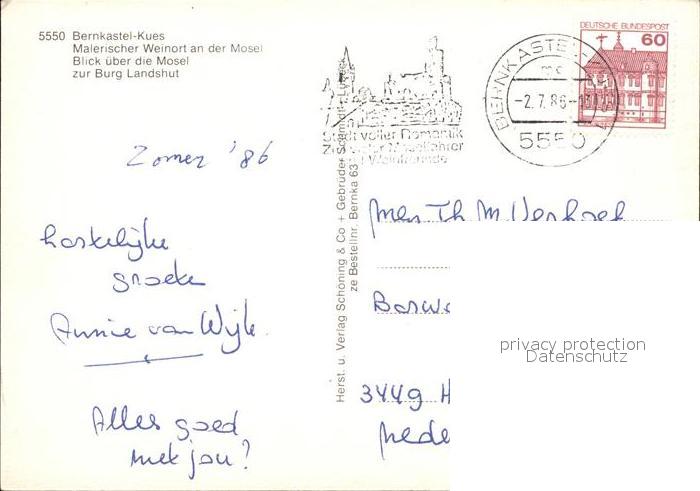 5550 Bernkastel-Kues
Malerischer Weinort an der Mosel
Blick über die Mosel
zur Burg Landshut
DEUTSCHE BUNDESPOST
60
BERNKASTEL-
-2.7.86-
5550
Stadt voller Romantik
Weinfreunde
Zomer '86
hartelijke
groeten
Annie van Wijk.
Alles goed
met jou?
Herst. u. Verlag Schöning & Co + Gebrüder Schmidt, Lübeck
ze Bestellnr. Bernka 63
Mev. Th. M. Verhoef
3449 H
Nede
privacy protection
Datenschutz